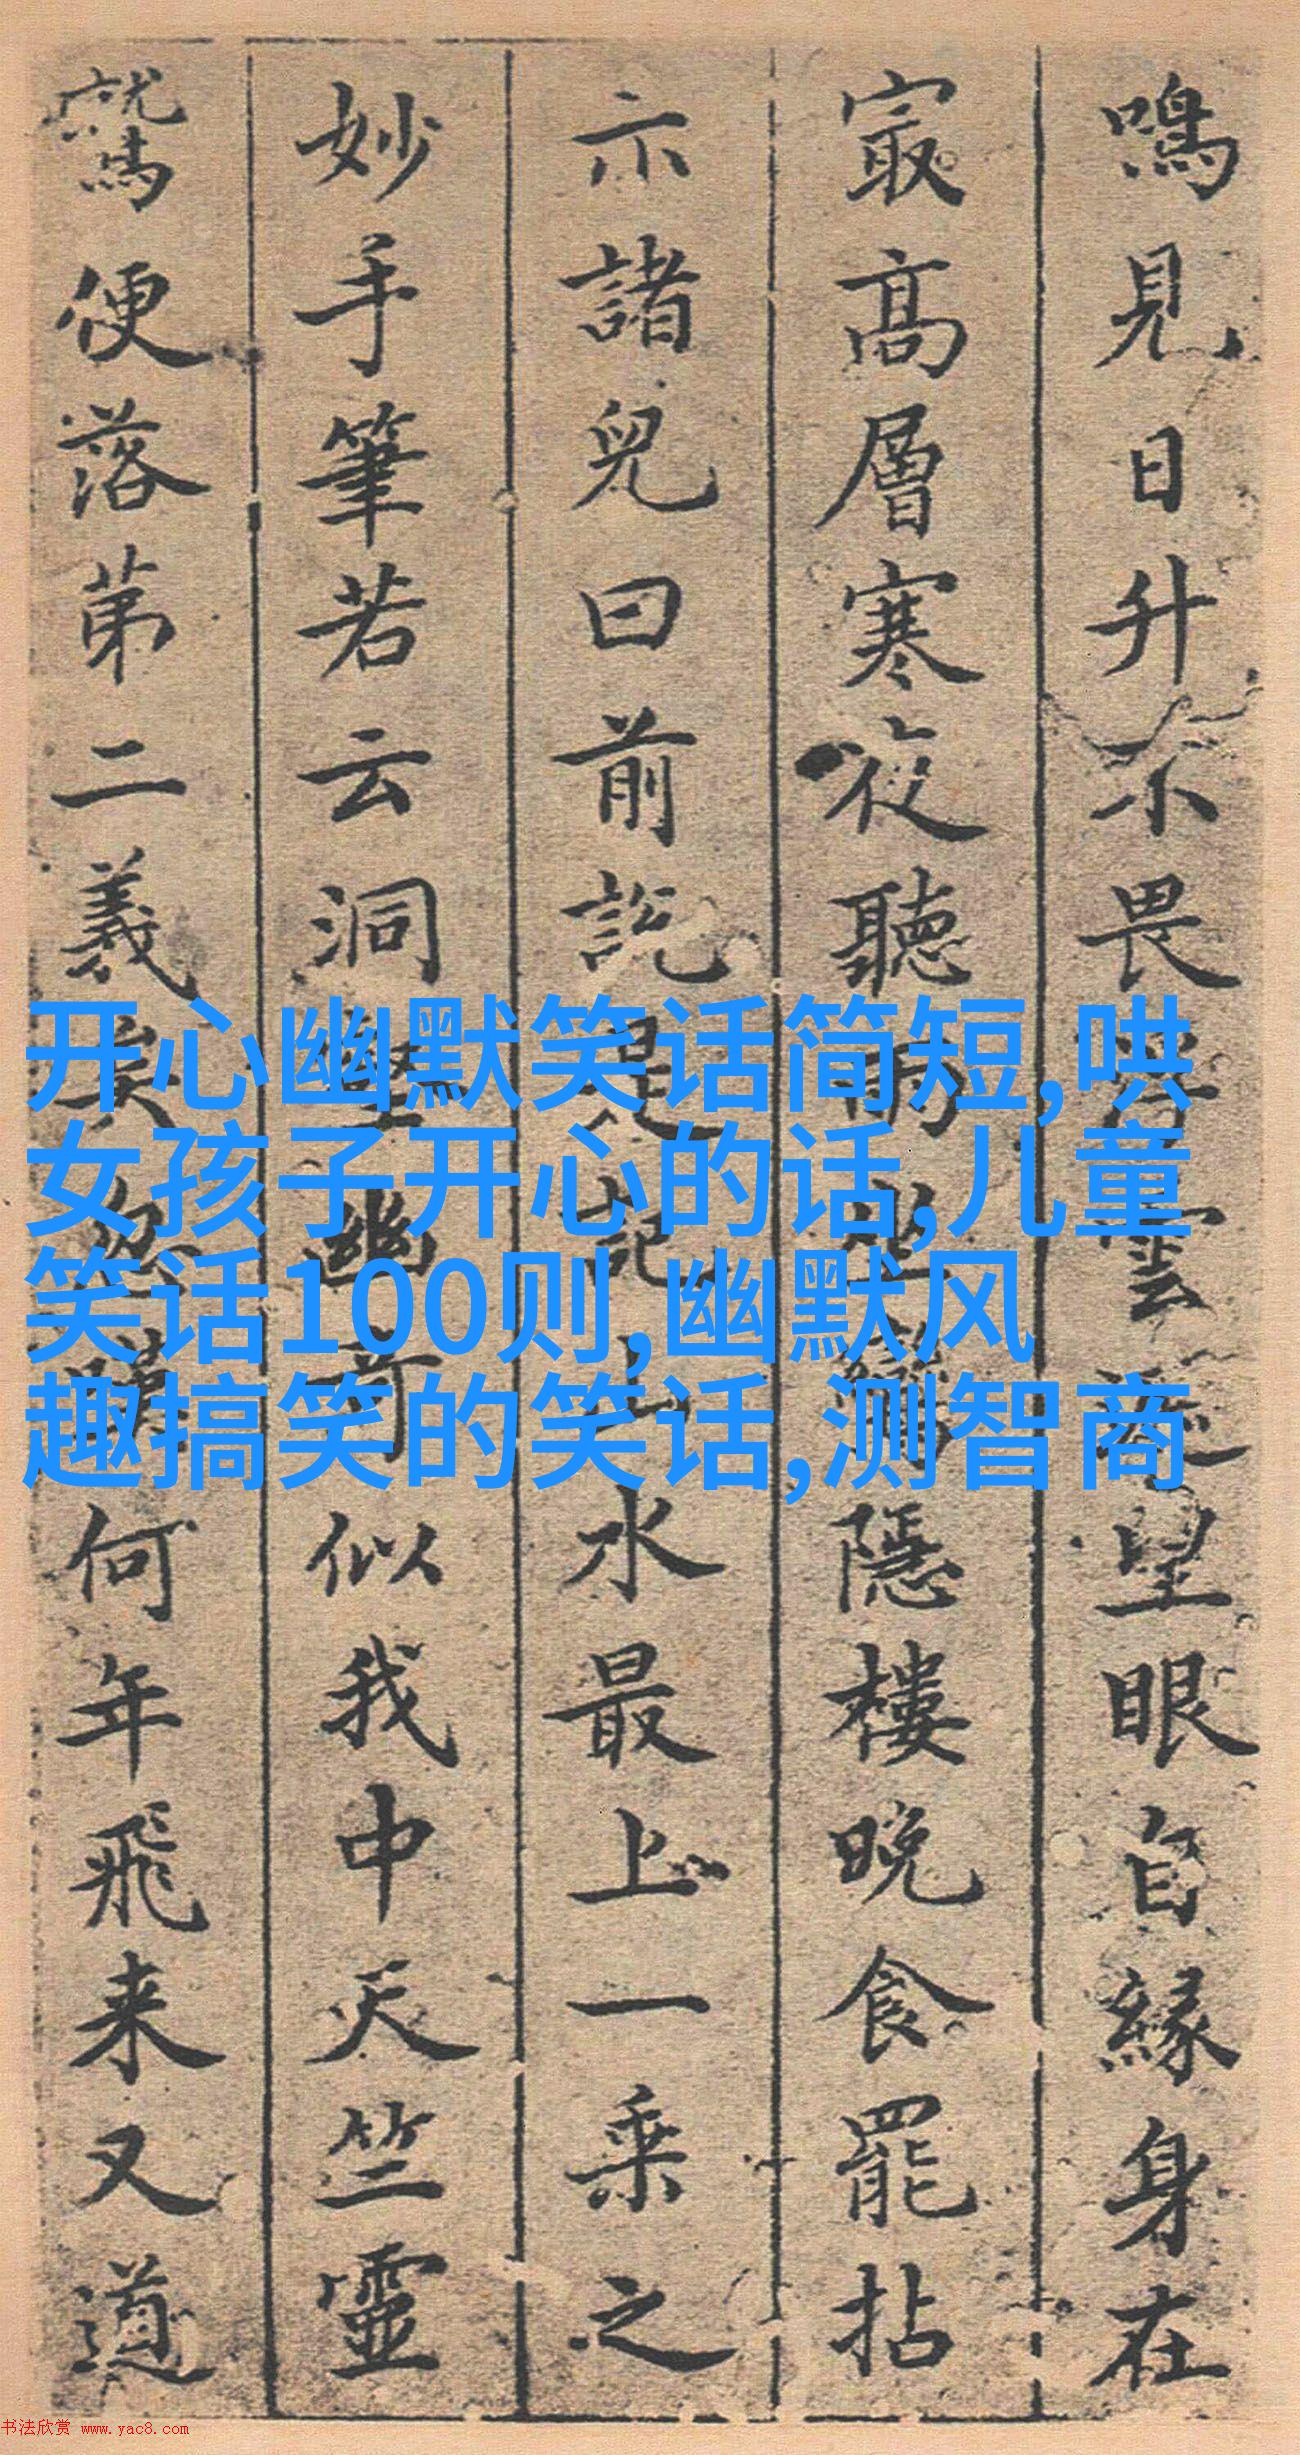 鳴見日升不畏浮雲遮望眼自緣身在
冣高層寒夜聽雨隱樓晚食罷拈
示諸兒曰前說是記山水最上一乘之
妙手筆若云洞壑幽奇似我中天竺靈
鷲便落第二義矣何年飛来又道
开心幽默笑话简短,哄
女孩子开心的话,儿童
笑话100则,幽默风
趣搞笑的笑话,测智商
书法欣赏 www.yac8.com